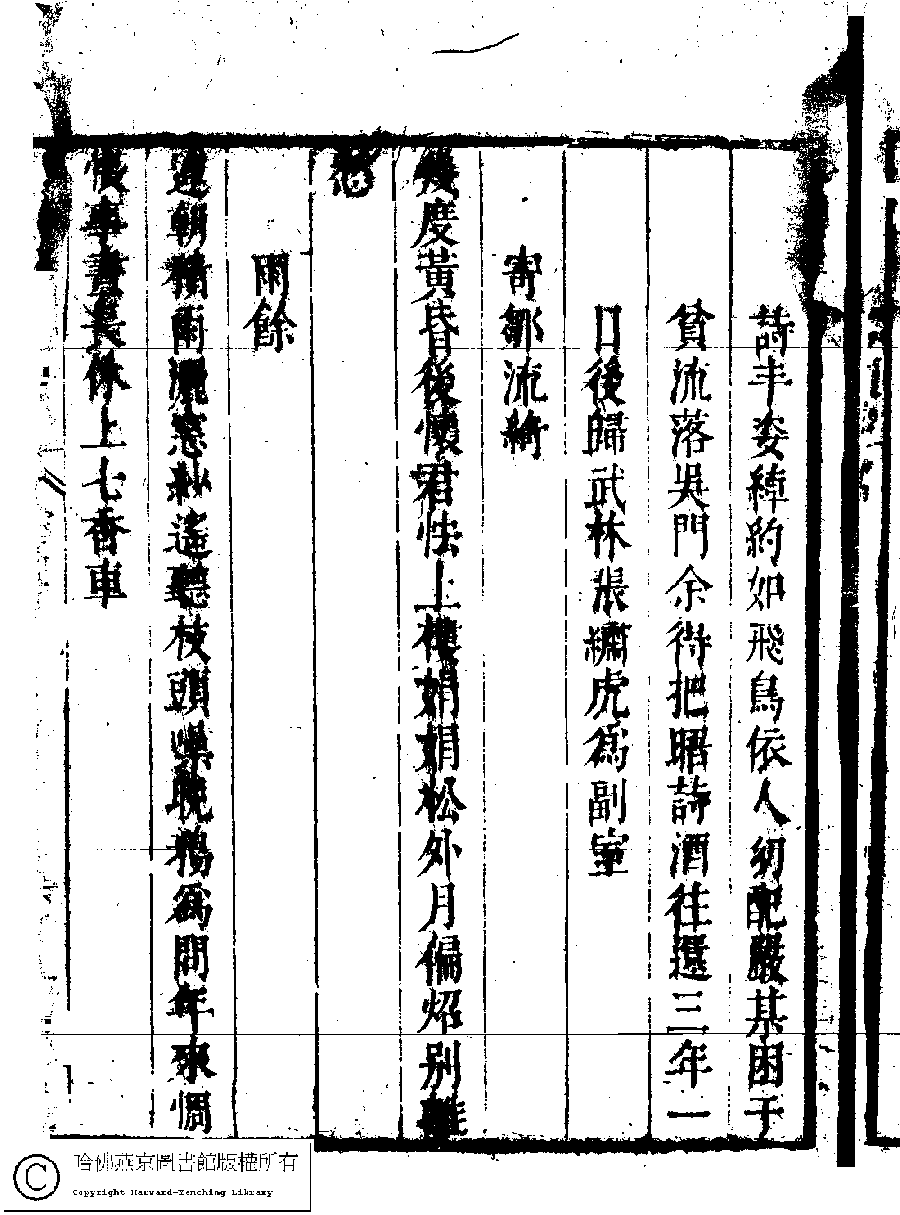 詩丰姿綽約如飛鳥依人幼配嚴某困于
貧流落吳門余得把晤詩酒往還三年一
日後歸武林張繡虎爲副室
寄鄒流綺
幾度黃昏後懷君怯上樓娟娟松外月偏炤別離
愁
雨餘
連朝積雨灑窓紗遙聽枝頭噪晚鴉爲問年來惆
悵事書長休上七香車
哈佛燕京圖書館版權所有
Copyright Harvard-Yenching Library